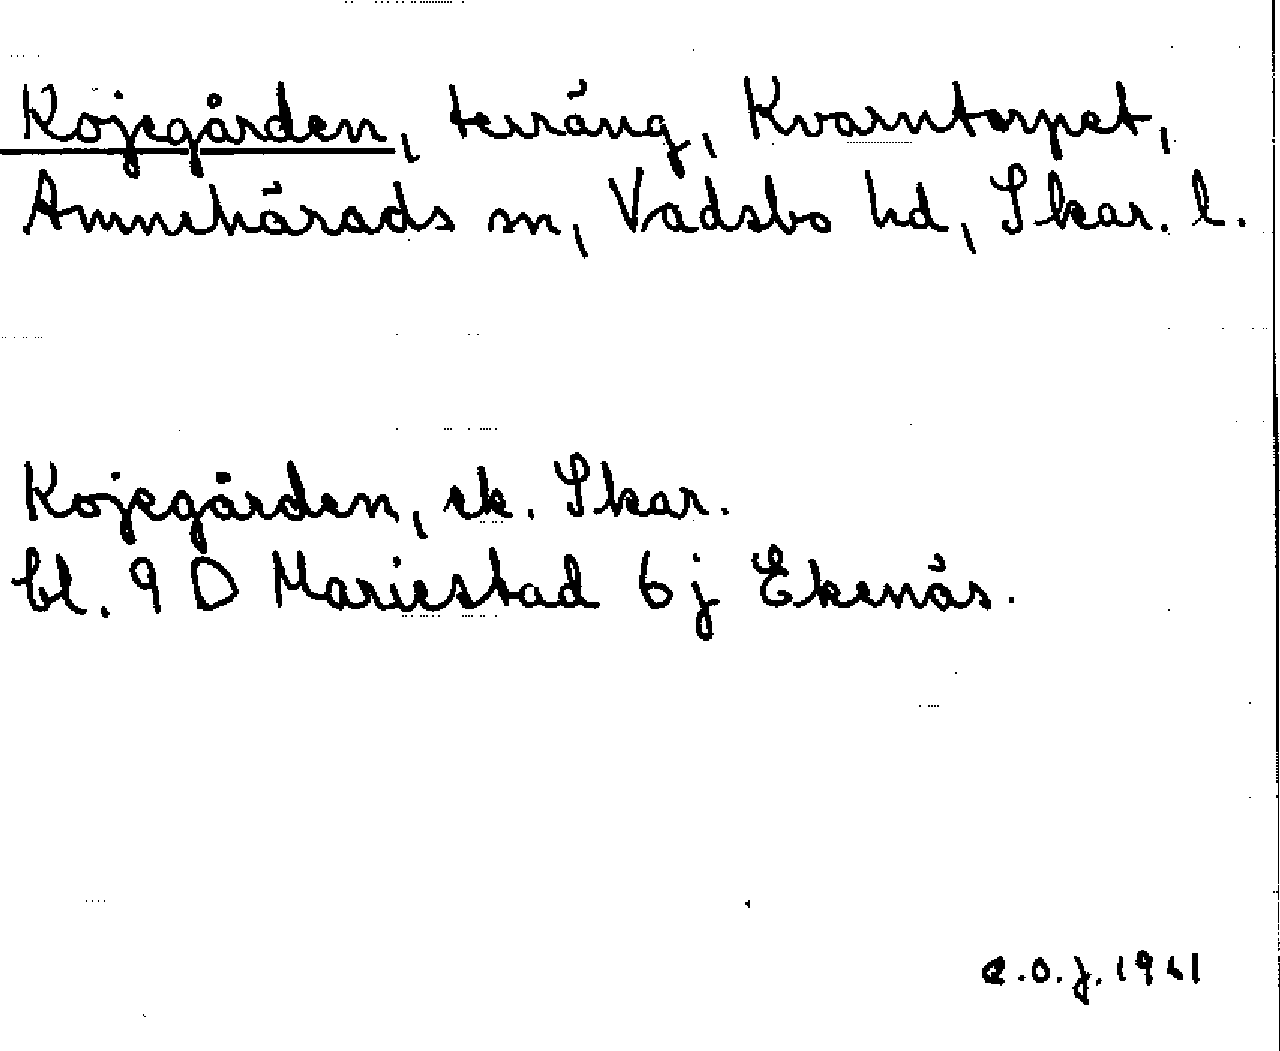 Kojegården, terräng, Kvarntorpet,
Amnehärads sn, Vadsbo hd, Skar. l.
Kojegården, ek. Skar.
bl. 9 D Mariestad 6 j Ekenäs.
C.O.J. 1961